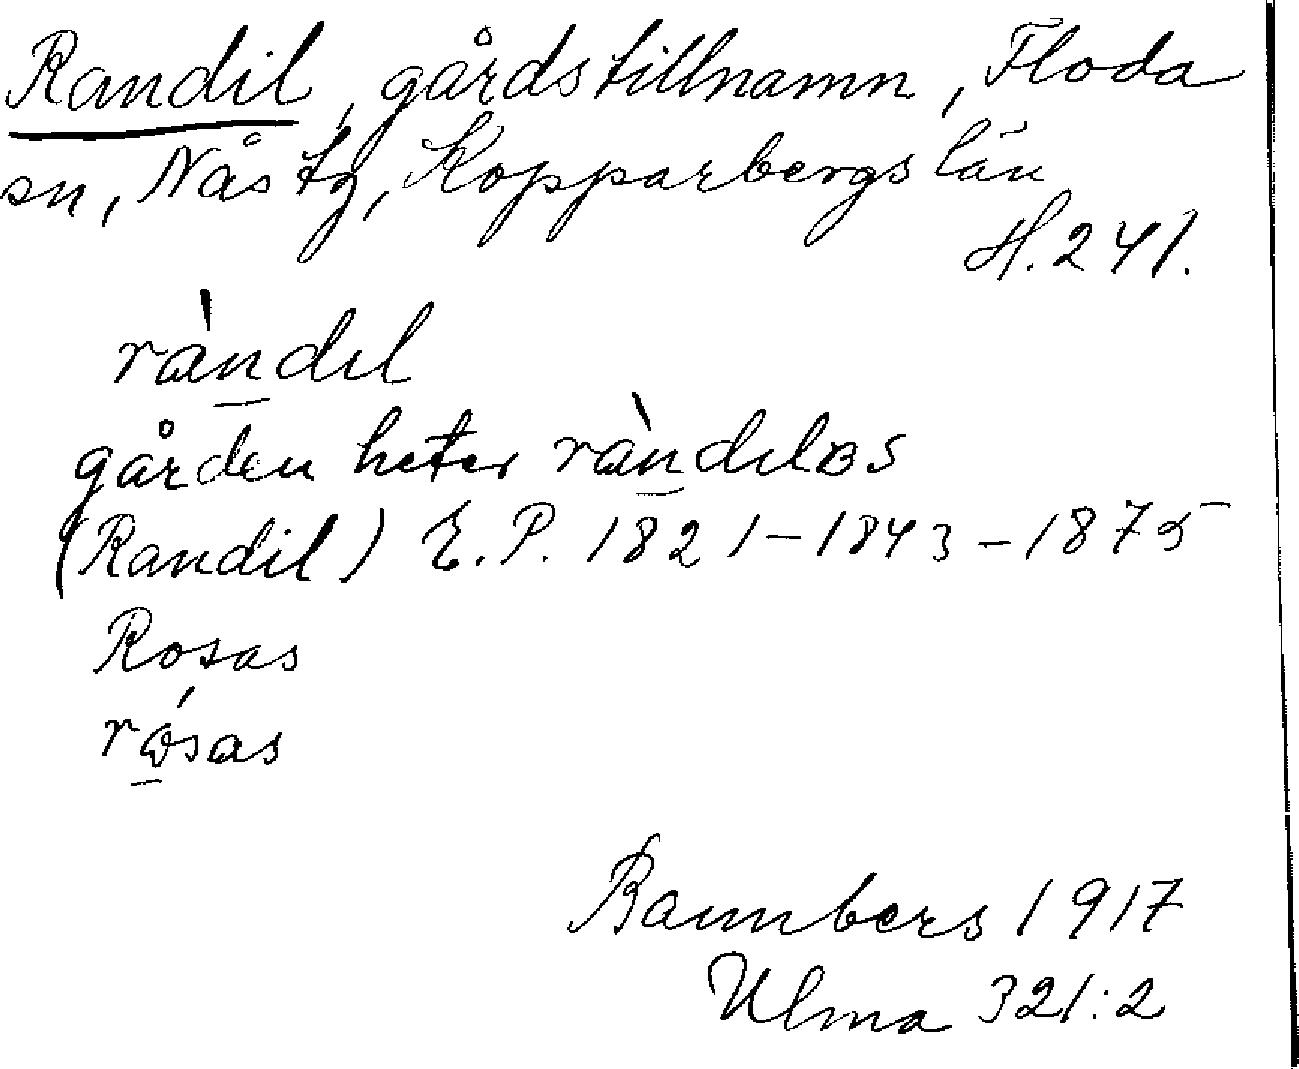 Randil, gårdstillnamn, Floda
sn, Nås tg, Kopparbergs län
H. 241.
ràndıl
gården heter ràndılɞs
(Randil) E. P. 1821–1843–1875
Rosas
rɷ́sas
Bannbers 1917
Ulma 321:2